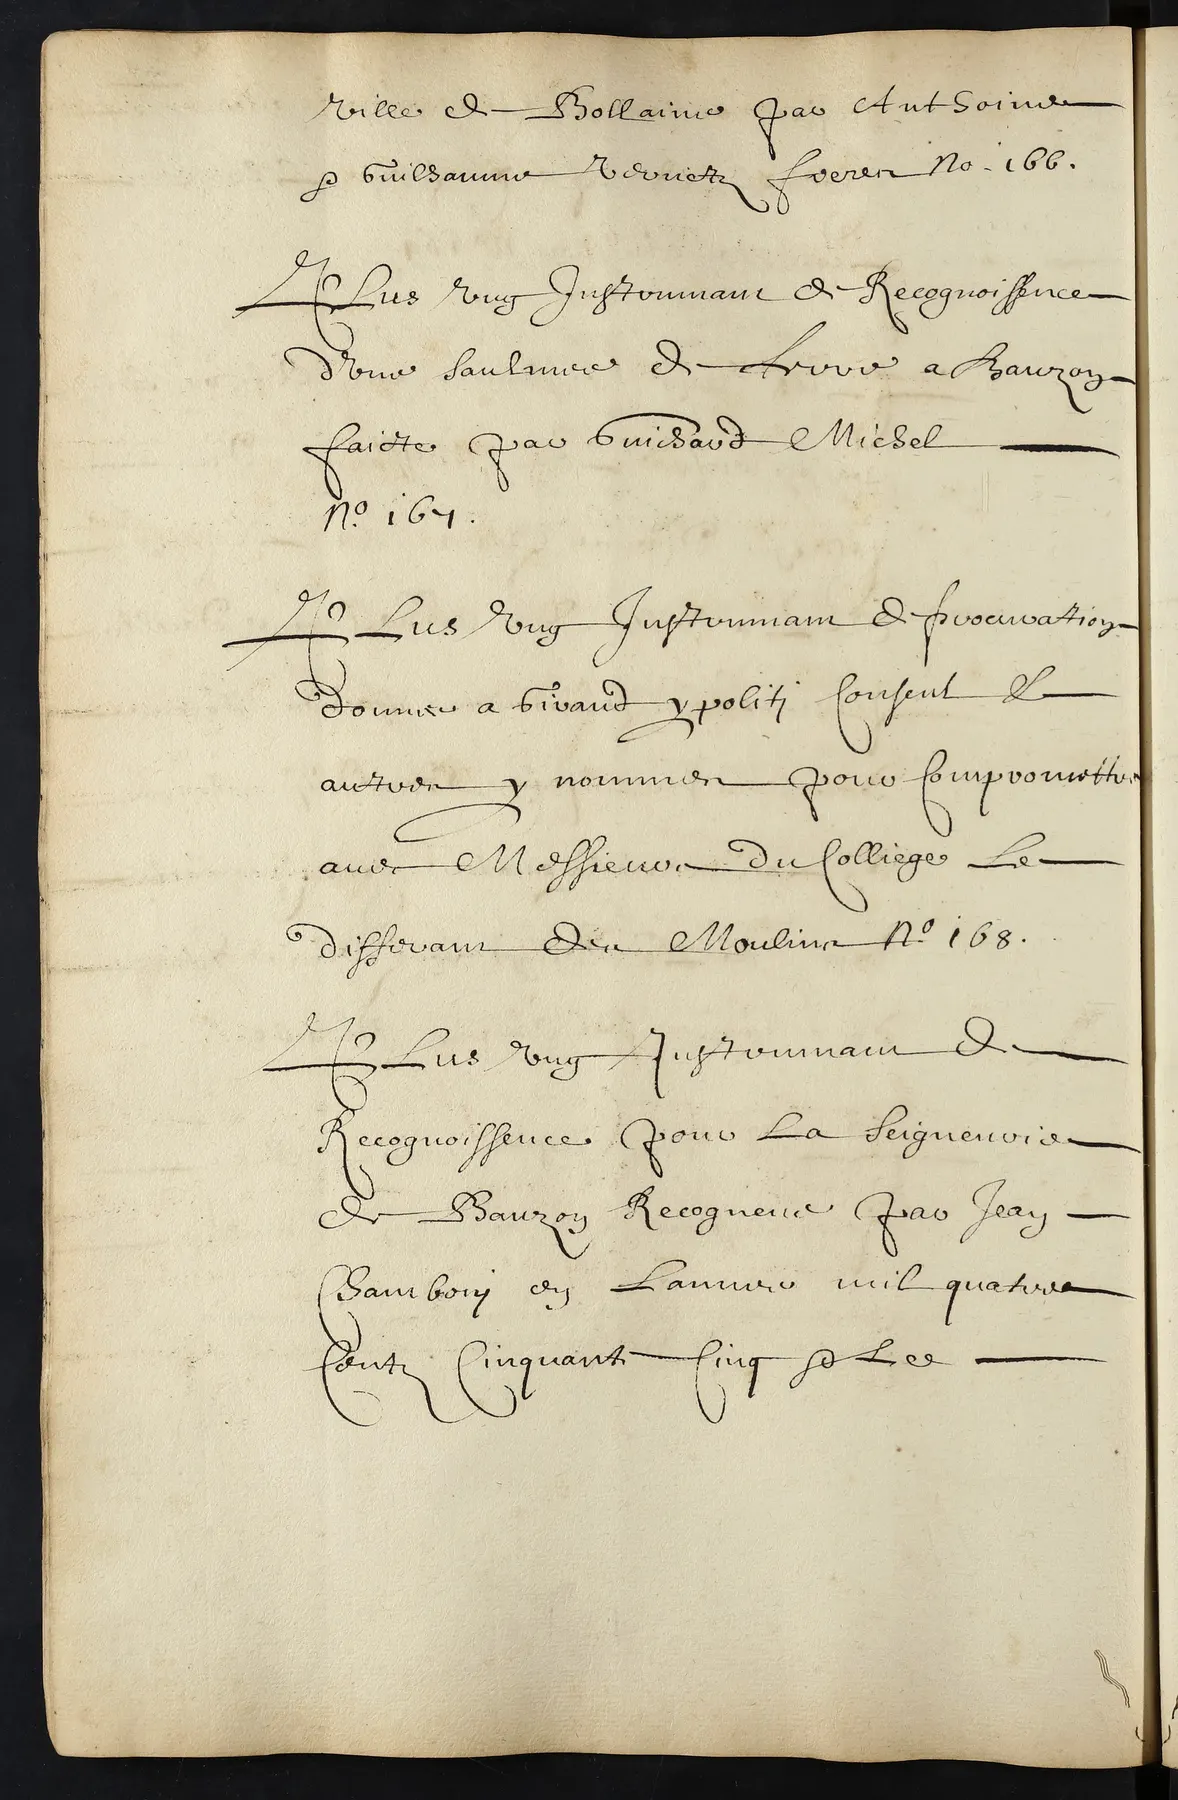 ville de Bollaine par Anthoine
& Guilhaume Vernetz freres No. 166.
Plus vng Instrumant de Recognoissence
d'vne saulmee de terre a Bauzon
faicte par Guichard Michel
No. 167.
Plus vng Instrumant de procuration
donnee a Giraud ypoliti Conseul &
autres y nommes pour Compromettre
auec Messieurs du Colliege Le
differant des Moulins No. 168.
Plus vng Instrumant de
Recognoissence pour La Seigneurie
de Bauzon Recogneue par Jean
en Lannee mil quatre
Centz Cinquante Cinq & Le